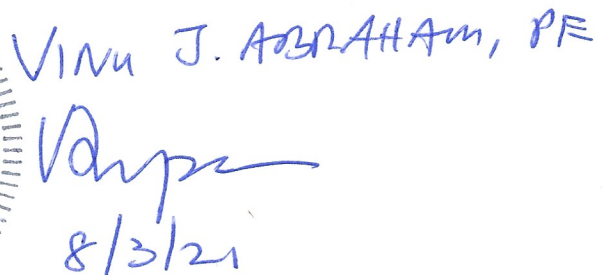 VINU J. ABRAHAM, PE
8/3/21